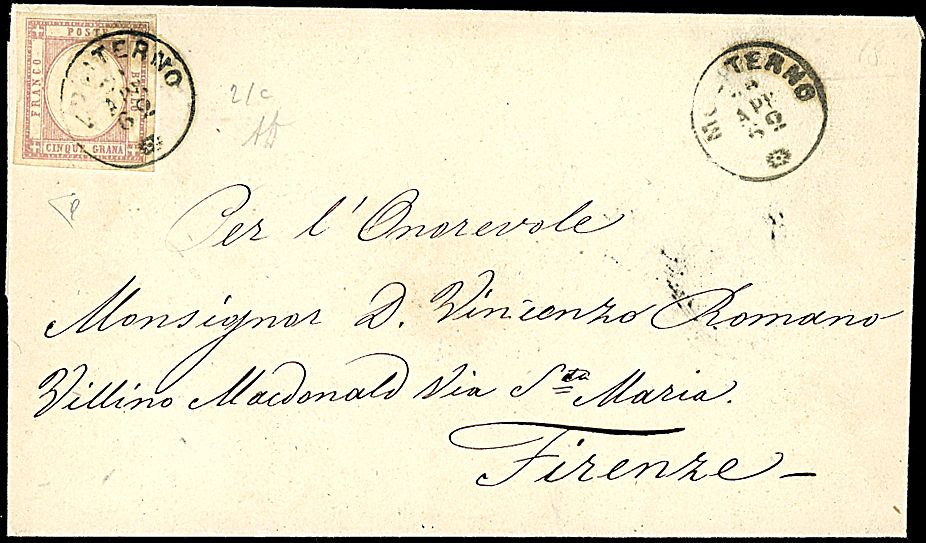 POSTE
FRANCO
BOLLO
CINQUE GRANA
TERNO
APR
61
TERNO
APR
61
2/c
AD
Per l'Onorevole
Monsignor D. Vincenzo Romano
Villino Macdonald Via Sta Maria.
Firenze